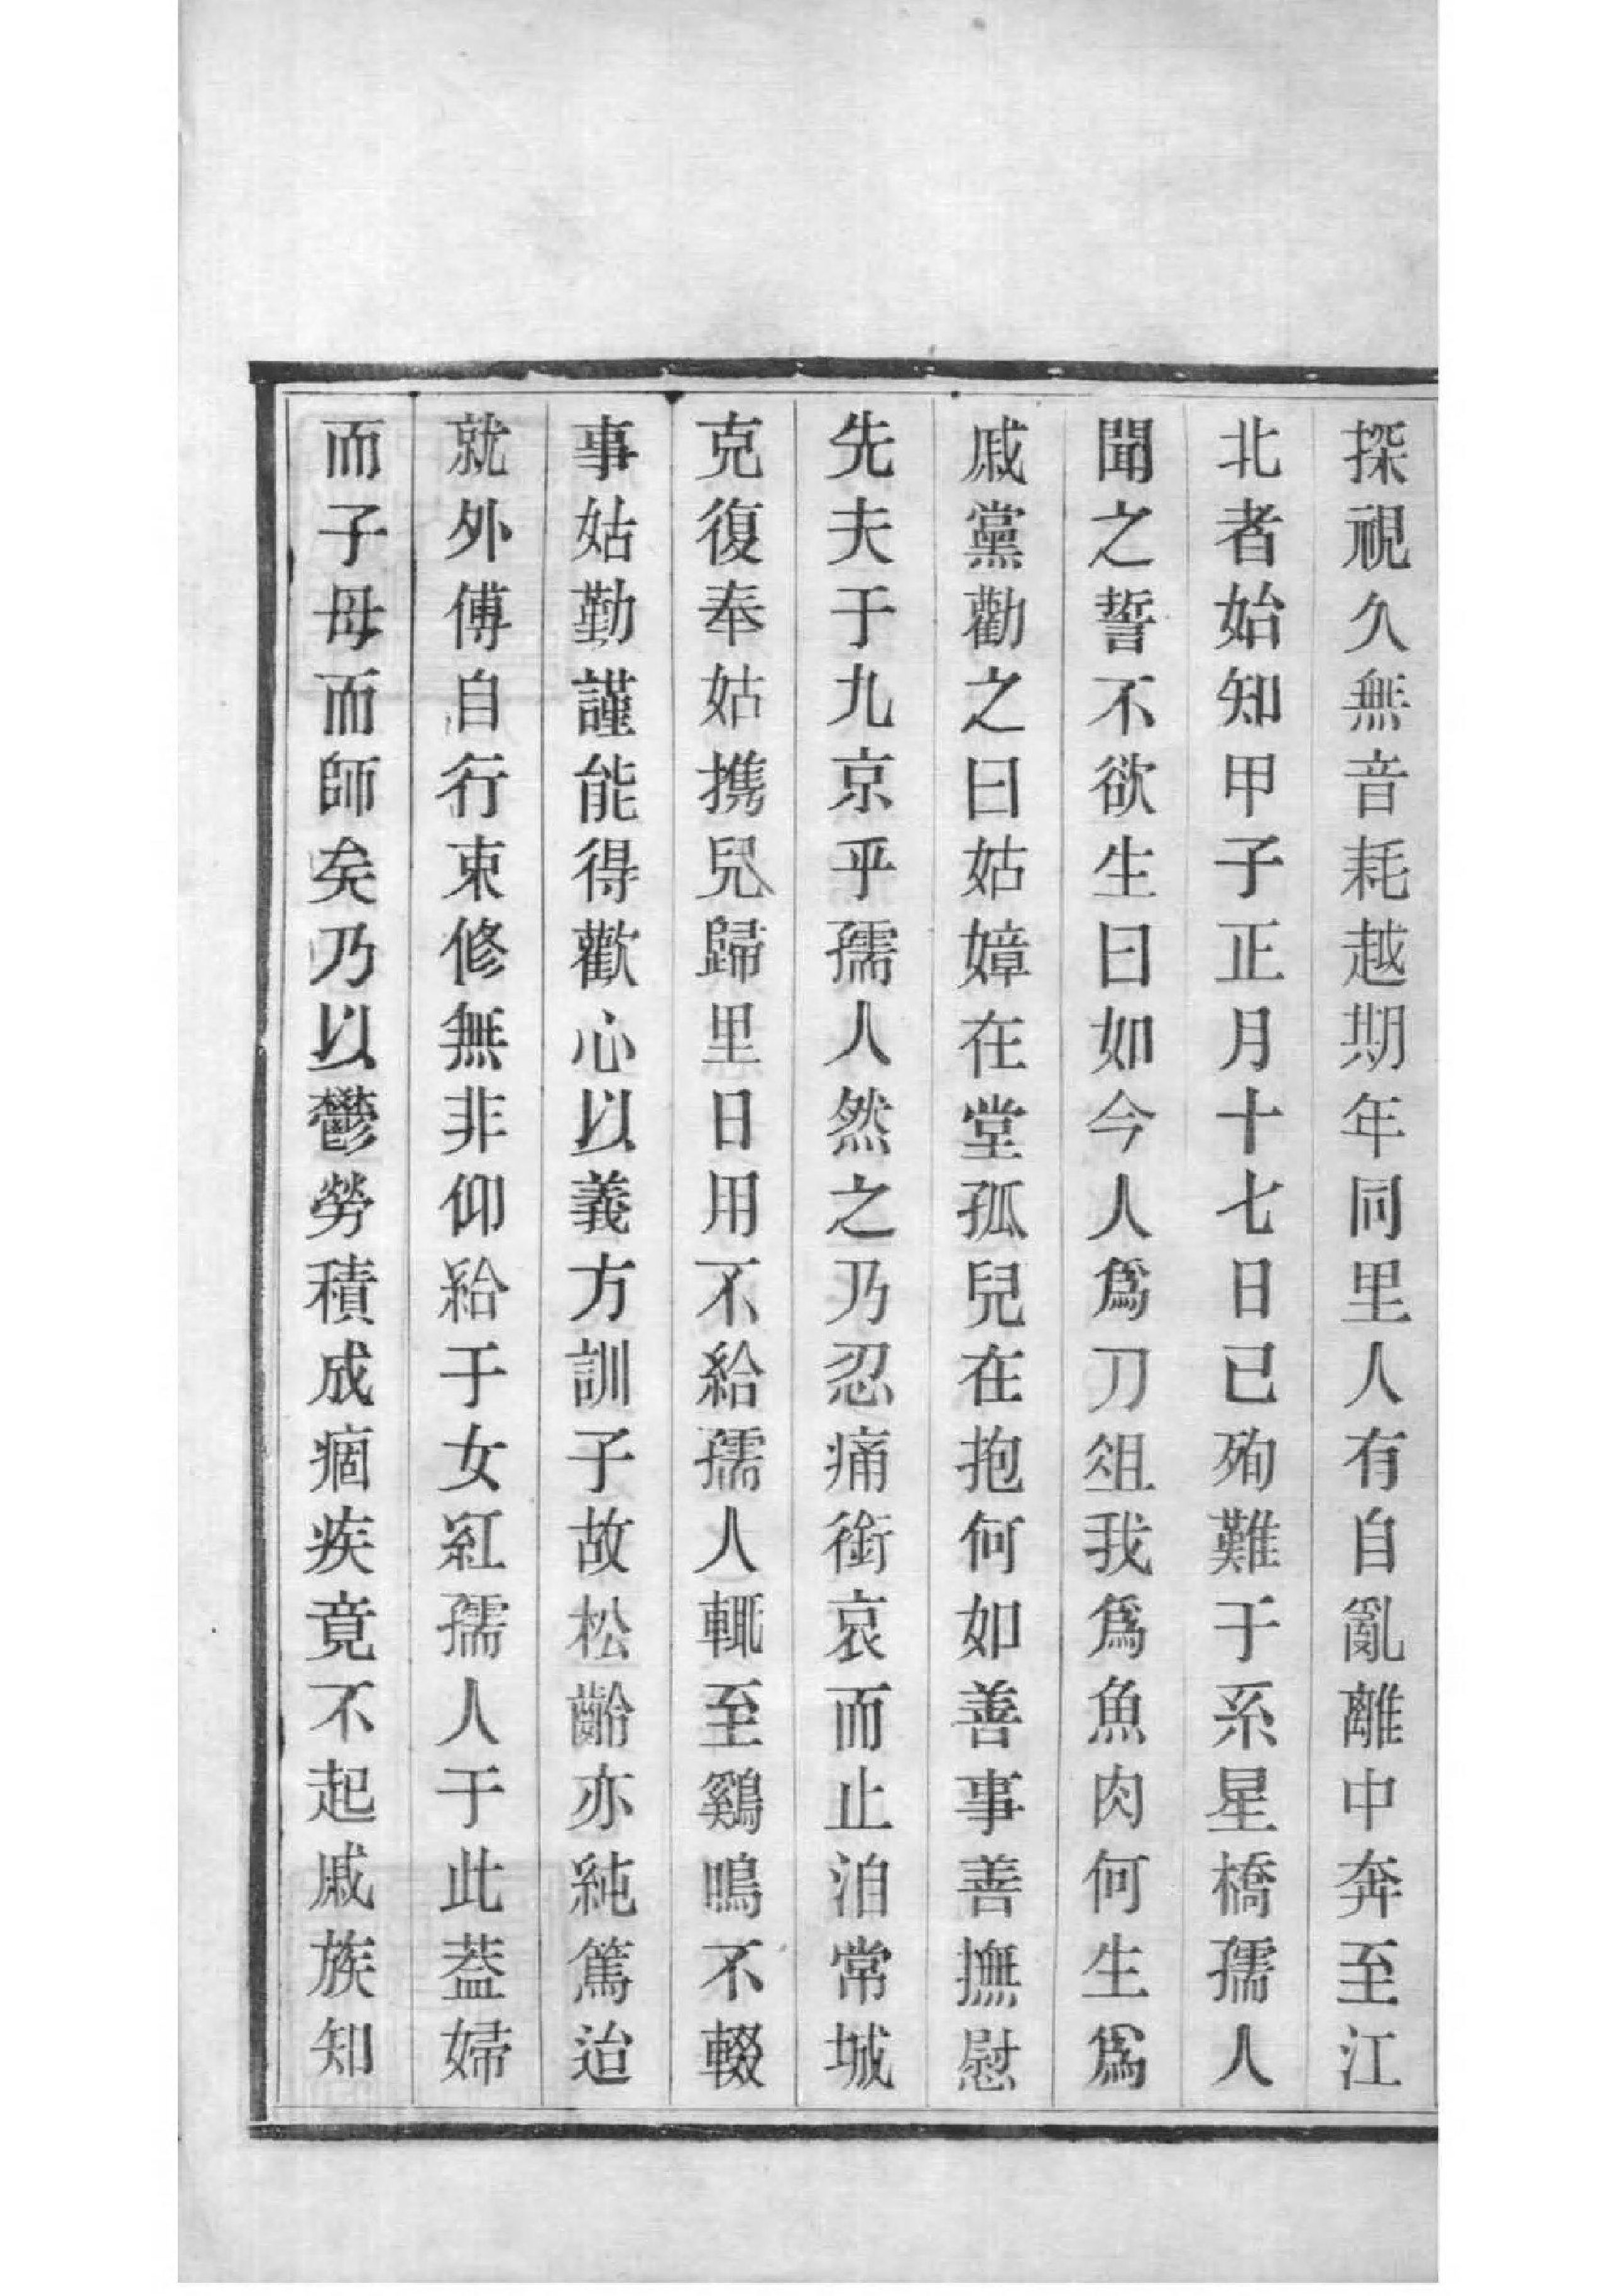 探視久無音耗越期年同里人有自亂離中奔至江
北者始知甲子正月十七日已殉難于系星橋孺人
聞之誓不欲生曰如今人爲刀俎我爲魚肉何生爲
戚黨勸之曰姑嫜在堂孤兒在抱何如善事善撫慰
先夫于九京乎孺人然之乃忍痛銜哀而止洎常城
克復奉姑携兒歸里日用不給孺人輒至鷄鳴不輟
事姑勤謹能得歡心以義方訓子故松齡亦純篤迨
就外傅自行束修無非仰給于女紅孺人于此葢婦
而子母而師矣乃以鬱勞積成痼疾竟不起戚族知